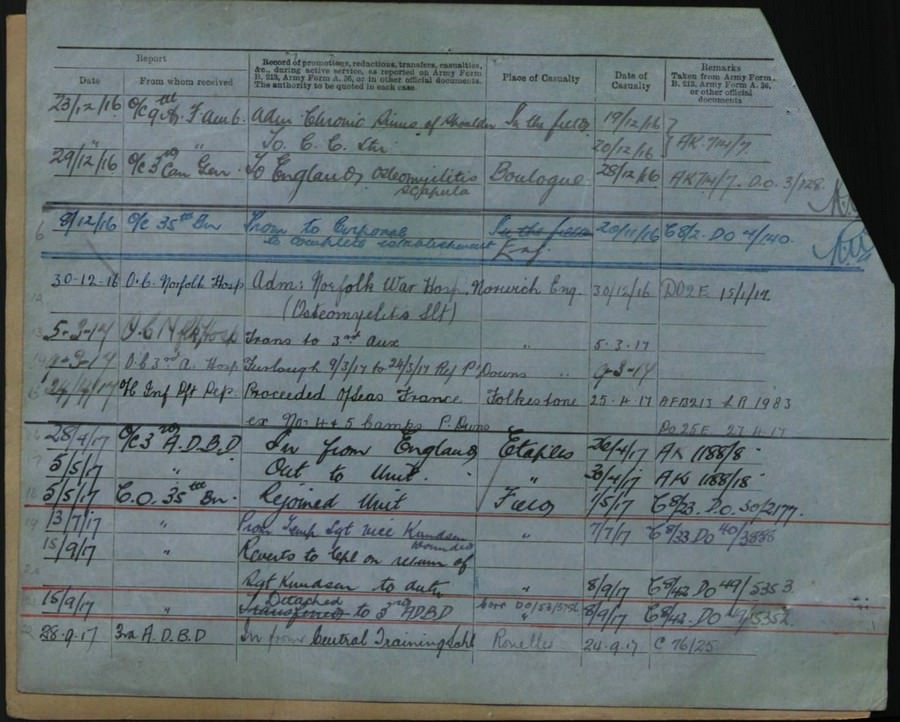 Report
Record of promotions, reductions, transfers, casualties, &c., during active service, as reported on Army Form B. 213, Army Form A. 36, or in other official documents. The authority to be quoted in each case.
Place of Casualty
Date of Casualty
Remarks Taken from Army Form B. 213, Army Form A. 36, or other official documents
Date
From whom received
23/12/16 O/C 9th F Amb. Adm Chronic Sinus of Shoulder In the field 19/12/16
" To C. C. Stn 20/12/16 AK 74/7.
29/12/16 O/C 3rd Can Gen. To England Osteomyelitis scapula Boulogne 28/12/16 AK 74/7. D.O. 3/128.
9/12/16 O/C 35th Bn Prom to Corporal In the field 20/11/16 C8/2. DO 4/140.
to complete establishment Eng
30-12-16 O.C. Norfolk Hosp Adm: Norfolk War Hosp. Norwich Eng 30/12/16 DO2E 15/1/17.
(Osteomyelitis Slt)
5-3-17 O.C Trans to 3rd Aux " 5.3.17
9-3-17 O.C 3rd A. Hosp Furlough 9/3/17 to 24/3/17 Rep P. Downs " 9-3-17
24/4/17 Inf Dft Dep. Proceeded O/seas France Folkestone 25.4.17 AFB213 LR 1983
ex No: 4 & 5 Camps P. Downs Do25E 27.4.17
28/4/17 O/C 3rd A.D.B.D In from England Etaples 26/4/17 AK 1188/8
5/5/17 " Out to Unit. " 30/4/17 AK 1188/18
5/5/17 C.O. 35th Bn. Rejoined Unit Field 1/5/17 C8/23. D.O. 50/2177.
13/7/17 " Prom Temp Sgt vice Kundsen wounded " 7/7/17 C8/33 DO 40/3886
15/9/17 " Reverts to Cpl on return of
Sgt Kundsen to duty " 8/9/17 C8/42. DO 49/5353
15/9/17 " Detached
Transferred to 3rd ADBD Corr DO/53/5786 " 8/9/17 C8/42. DO 49/5352.
28.9.17 3rd A.D.B.D In from Central Training Schl Rouelles 24.9.17 C 76/25